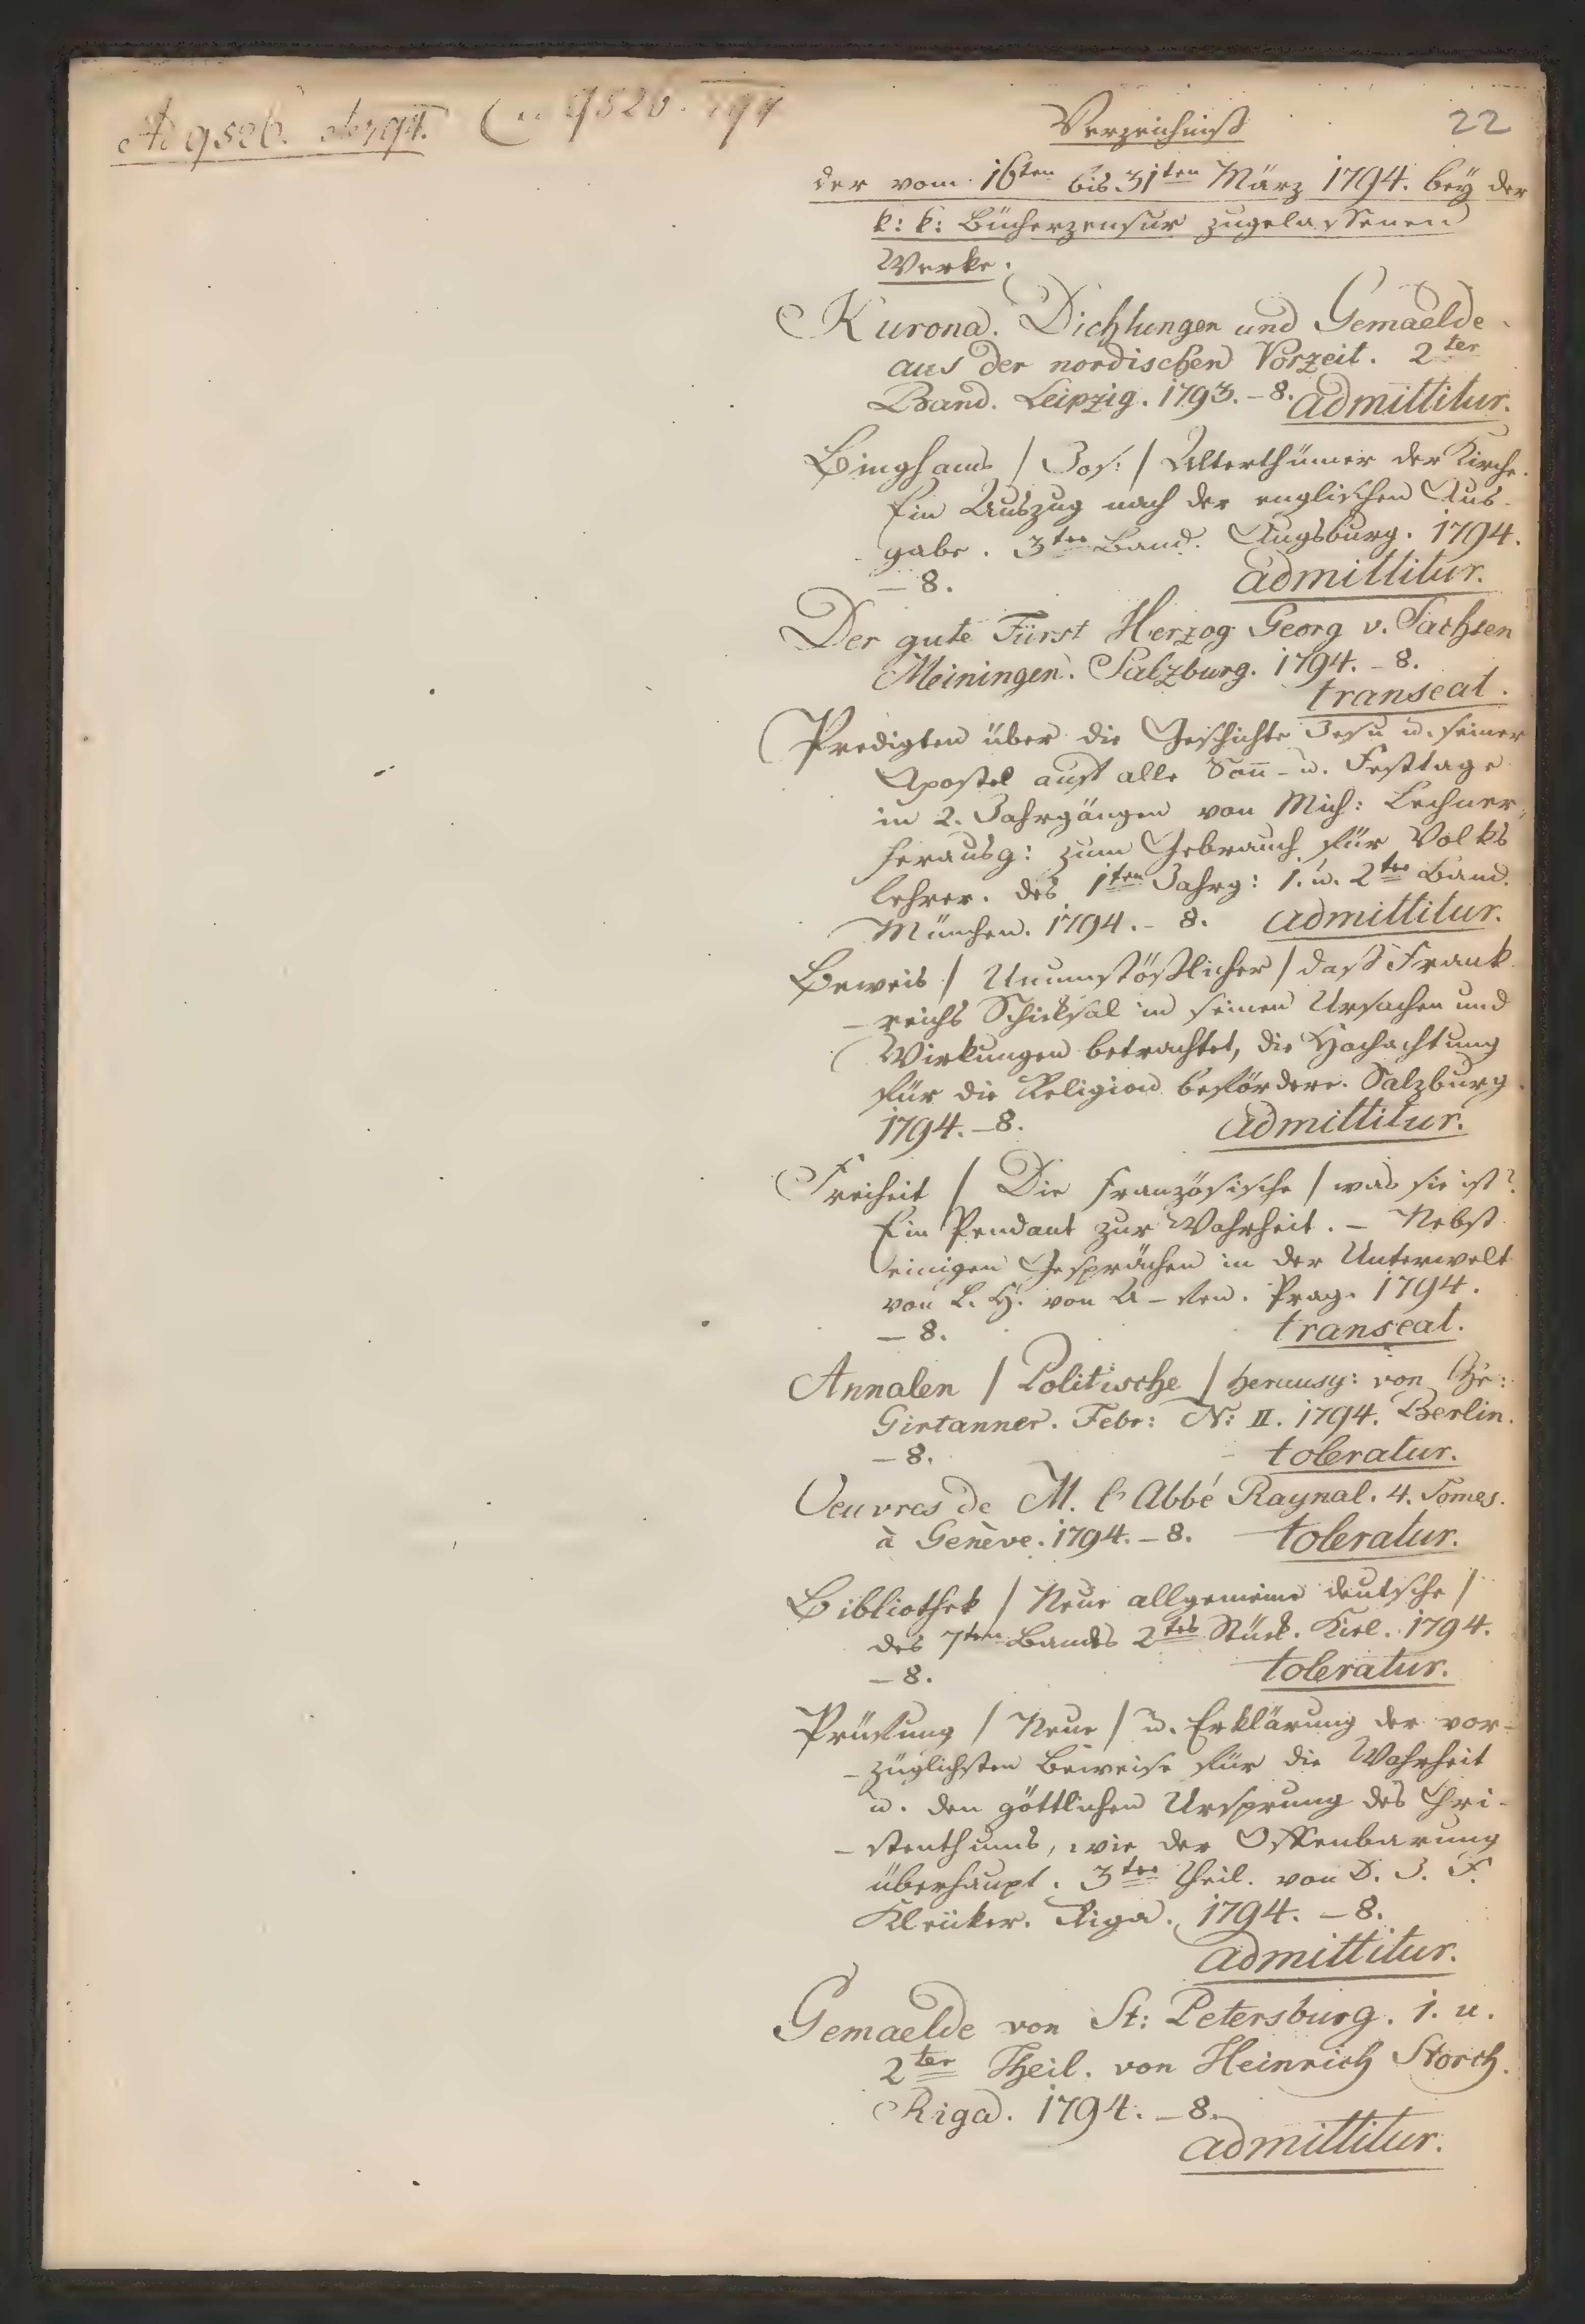 Ad 9526.
9526. 794
22
Verzeichniß
der vom 16ten bis 31ten März 1794. beÿ der
k: k: Bücherzensur zugelassenen
Werke.
Kurona. Dichtungen und Gemaelde
aus der nordischen Vorzeit. 2ter
Band. Leipzig. 1793. – 8. admittitur.
Binghams / Jos: / Alterthümer der Kirche.
Ein Auszug nach der englischen Aus-
gabe. 3ter Band. Augsburg. 1794.
– 8. admittitur.
Der gute Fürst Herzog Georg v. Sachsen
Meiningen. Salzburg. 1794. – 8.
transeat.
Predigten über die Geschichte Jesu u. seiner
Apostel auf alle Soñ- u. Festtage
in 2. Jahrgängen von Mich: Lechner,
herausg: zum Gebrauch für Volks
lehrer. des 1ten Jahrg: 1. u. 2ter Band.
München. 1794. – 8. admittitur.
Beweis / Unumstößlicher / daß Frank
– reichs Schicksal in seinen Ursachen und
Wirkungen betrachtet, die Hochachtung
für die Religion befördere. Salzburg.
1794. – 8. admittitur.
Freiheit / Die französische / was sie ist?
Ein Pendant zur Wahrheit. – Nebst
einigen Gesprächen in der Unterwelt
von L. H. von Prag. 1794.
– 8. transeat.
Annalen / Politische / herausg: von Chr:
Girtanner. Febr: N: II. 1794. Berlin.
– 8. toleratur.
Oeuvres de M. l'Abbé Raynal. 4. Tomes.
à Genève. 1794. – 8. toleratur.
Bibliothek / Neue allgemeine deutsche /
des 7ten Bandes 2tes Stück. Kiel. 1794.
– 8. toleratur.
Prüfung / Neue / u. Erklärung der vor-
– züglichsten Beweise für die Wahrheit
u. den göttlichen Ursprung des Chri-
– stenthums, wie der Offenbarung
überhaupt. 3ter Theil. von D. J. F.
Kleuker. Riga. 1794. – 8.
admittitur.
Gemaelde von St: Petersburg. 1. u.
2ter Theil. von Heinrich Storch.
Riga. 1794. – 8.
admittitur.